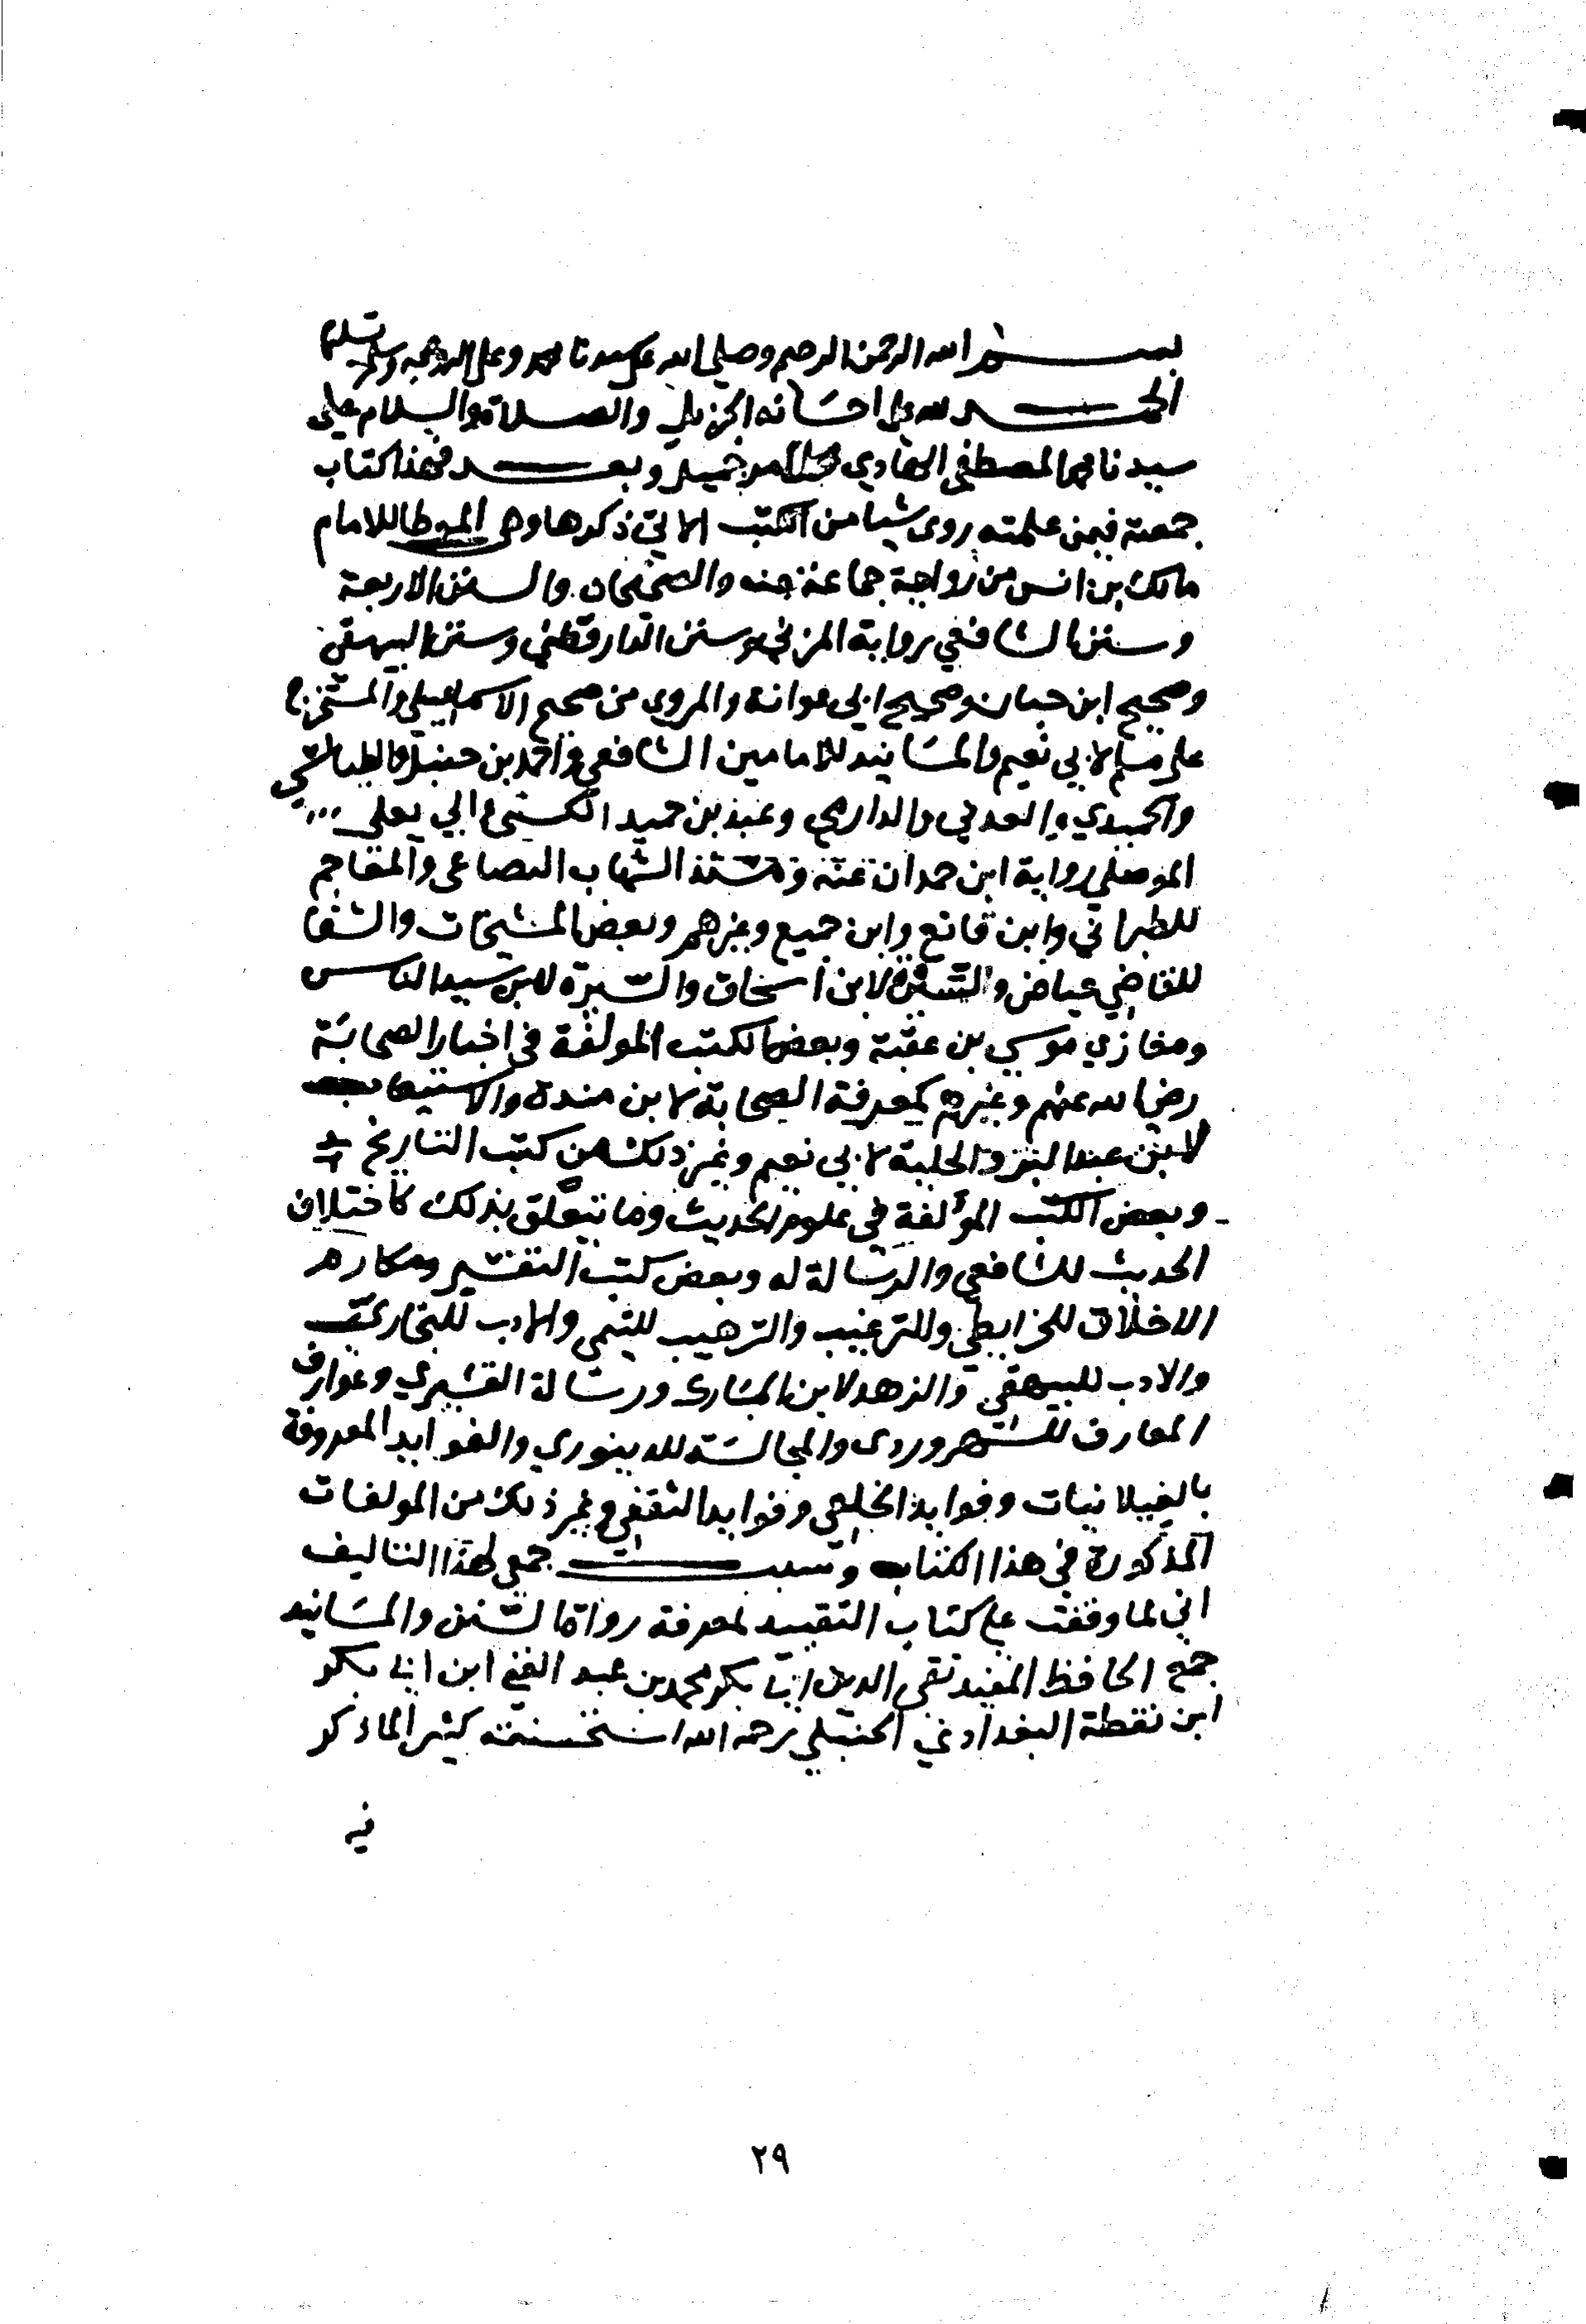 بسم الله الرحمن الرحيم وصلى الله على سيدنا محمد وعلى اله وصحبه وسلم تسليما
الحمد لله على احسانه الجزيل والصلاة والسلام على
سيدنا محمد المصطفى الهادي لكل امر جميل وبعد فهذا كتاب
جمعته فيمن علمته روى شيا من الكتب الاتي ذكرها وهي الموطا للامام
مالك بن انس من رواية جماعة عنه والصحيحان والسنن الاربعة
وسنن الشافعي رواية المزني وسنن الدارقطني وسنن البيهقي
وصحيح ابن حبان وصحيح ابي عوانة والمروي من صحيح الاسماعيلي والمستخرج
على مسلم لابي نعيم والمسانيد للامامين الشافعي واحمد بن حنبل والطيالسي
والحميدي والعدني والدارمي وعبد بن حميد الكشي وابي يعلى
الموصلي رواية ابن حمدان عنه ومسند الشهاب القضاعي والمعاجم
للطبراني وابن قانع وابن جميع وغيرهم وبعض المشيخات والشفا
للقاضي عياض والسيرة لابن اسحاق والسيرة لابن سيد الناس
ومغازي موسى بن عقبة وبعض الكتب المولفة في اخبار الصحابة
رضي الله عنهم وغيرهم كمعرفة الصحابة لابن مندة والاستيعاب
لابن عبد البر والحلية لابي نعيم وغير ذلك من كتب التاريخ
وبعض الكتب المؤلفة في علوم الحديث وما يتعلق بذلك كاختلاف
الحديث للشافعي والرسالة له وبعض كتب التفسير ومكارم
الاخلاق للخرايطي والترغيب والترهيب للتيمي والادب للبخاري
والادب للبيهقي والزهد لابن المبارك ورسالة القشيري وعوارف
المعارف للسهروردى والمجالسة للدينوري والفوايد المعروفة
بالغيلانيات وفوايد الخلعي وفوايد الثقفي وغير ذلك من المولفات
المذكورة في هذا الكتاب وسبب جمعي لهذا التاليف
اني لما وقفت على كتاب التقييد لمعرفة رواة السنن والمسانيد
جمع الحافظ المفيد تقي الدين ابي بكر محمد بن عبد الغني ابن ابي بكر
ابن نقطة البغدادي الحنبلي رحمه الله استحسنته كثيرا لما ذكر
فيه
٢٩